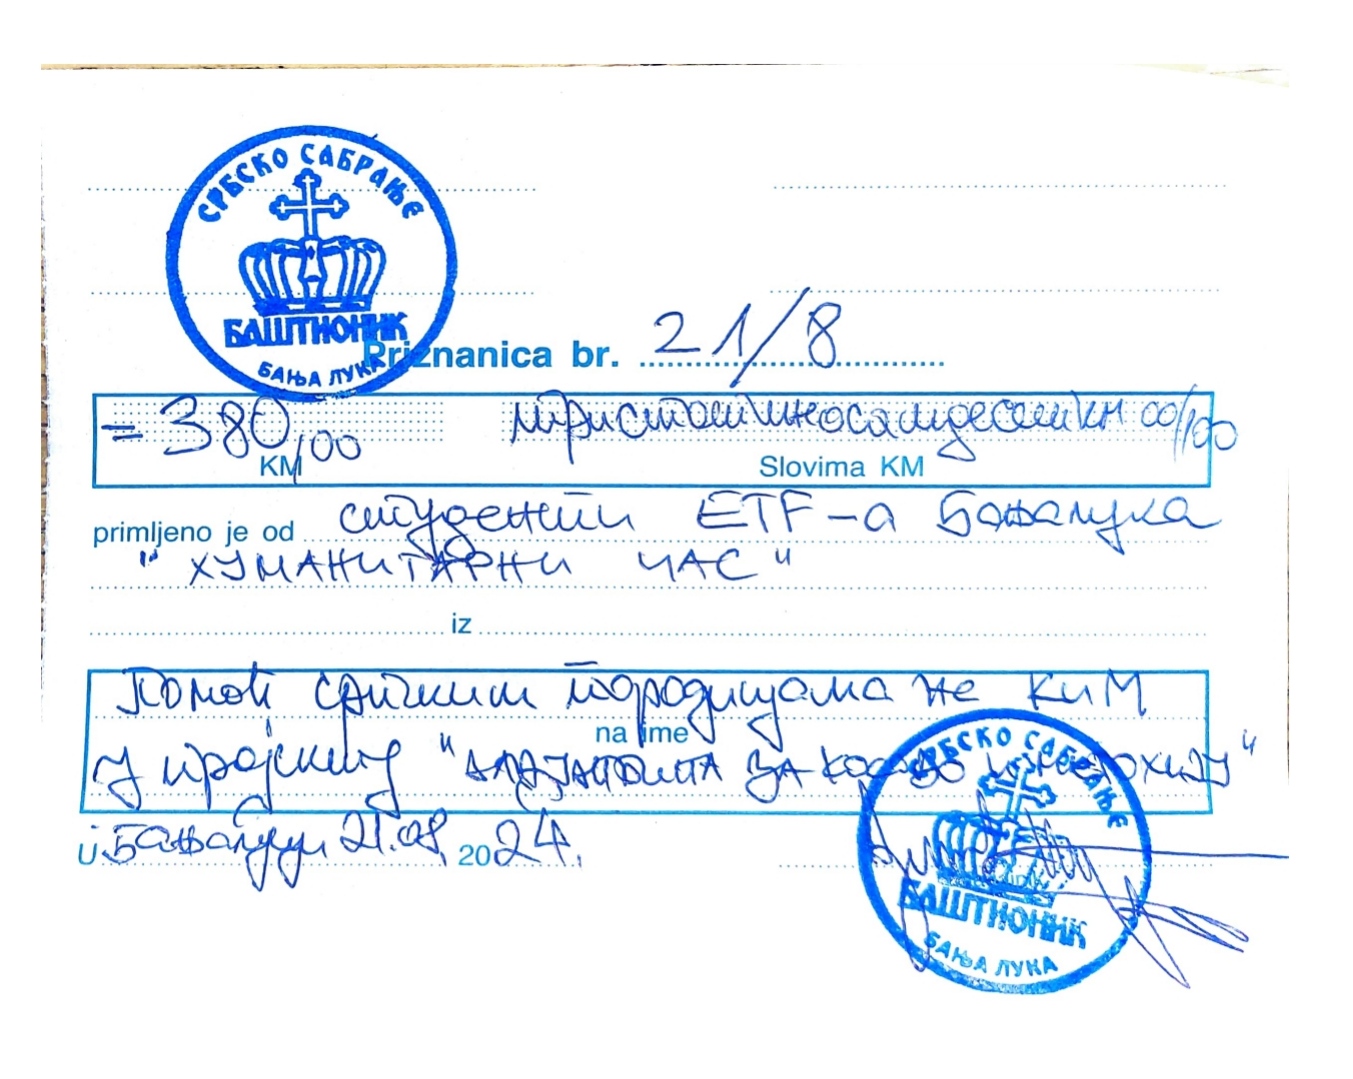 СРБСКО САБРАЊЕ
БАШТИОНИК
БАЊА ЛУКА
Priznanica br. 21/8
= 380,/00 тристаосамдесет КМ 00/100
KM Slovima KM
primljeno je od студенти ETF-а Бањалука
"ХУМАНИТАРНИ ЧАС"
iz
Помоћ српским породицама на КиМ
na ime
у пројекту " ЗА КОСОВО И МЕТОХИЈУ"
u Бањалуци 21.08. 2024.
СРБСКО САБРАЊЕ
БАШТИОНИК
БАЊА ЛУКА